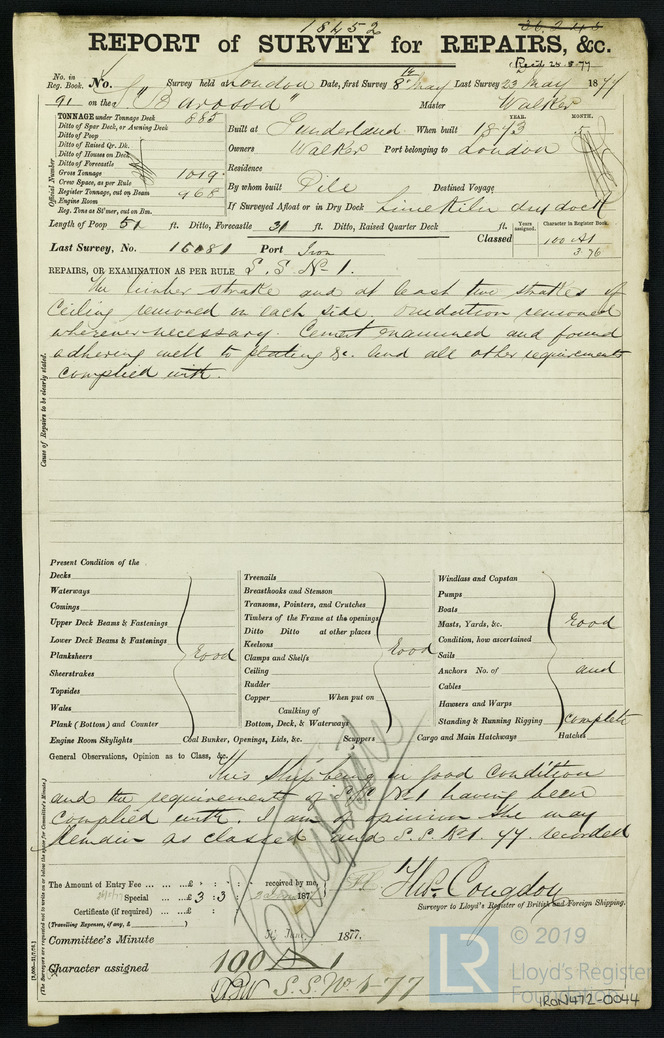 18452
REPORT of SURVEY for REPAIRS, &c.
Rec'd 28.5.77
No. in Reg. Book.
No. Survey held at London Date, first Survey 8th May Last Survey 23 May 1877
91 on the S "Barossa" Master Walker
TONNAGE under Tonnage Deck 885
Ditto of Spar Deck, or Awning Deck
Ditto of Poop
Ditto of Raised Qr. Dk.
Ditto of Houses on Deck
Ditto of Forecastle
Gross Tonnage 1019
Crew Space, as per Rule
Register Tonnage, cut on Beam 968
Engine Room
Reg. Tons as St'mer, cut on Bm.
Official Number
YEAR. MONTH.
Built at Sunderland When built 1873 5
Owners Walker Port belonging to London
Residence
By whom built Pile Destined Voyage
If Surveyed Afloat or in Dry Dock Limekiln dry dock
Length of Poop 51 ft. Ditto, Forecastle 31 ft. Ditto, Raised Quarter Deck ft.
Years assigned. Character in Register Book.
Classed 100 A1
3.76
Last Survey, No. 15081 Port Iron
REPAIRS, OR EXAMINATION AS PER RULE S. S. No 1.
The limber strake and at least two strakes of
Ceiling removed on each side, oxidation removed
wherever necessary. Cement examined and found
adhering well to plating &c. and all other requirements
complied with.
Cause of Repairs to be clearly stated.
Present Condition of the
Decks
Waterways
Comings
Upper Deck Beams & Fastenings
Lower Deck Beams & Fastenings
Planksheers Good
Sheerstrakes
Topsides
Wales
Plank (Bottom) and Counter
Treenails
Breasthooks and Stemson
Transoms, Pointers, and Crutches
Timbers of the Frame at the openings
Ditto Ditto at other places
Keelsons Good
Clamps and Shelfs
Ceiling
Rudder
Copper When put on
Caulking of
Bottom, Deck, & Waterways
Windlass and Capstan
Pumps
Boats
Masts, Yards, &c. Good
Condition, how ascertained
Sails
Anchors No. of and
Cables
Hawsers and Warps
Standing & Running Rigging complete
Engine Room Skylights Coal Bunker, Openings, Lids, &c. Scuppers Cargo and Main Hatchways Hatches
General Observations, Opinion as to Class, &c.
This Ship being in good condition
and the requirements of S.S. No 1 having been
complied with. I am of opinion she may
Remain as classed and S.S. No 1 77 recorded
The Amount of Entry Fee ... £ : : received by me,
Special ... £ 3 : 3 : 187
Certificate (if required) ... £ : :
(Travelling Expenses, if any, £ )
Thos. Congdon
Surveyor to Lloyd's Register of British and Foreign Shipping.
Committee's Minute 1877.
Character assigned 100 A 1
S.S. No. 1-77
(The Surveyors are requested not to write on or below the space for Committee's Minute.)
© 2019
Lloyd's Register
Foundation
LR
IRON472-0044